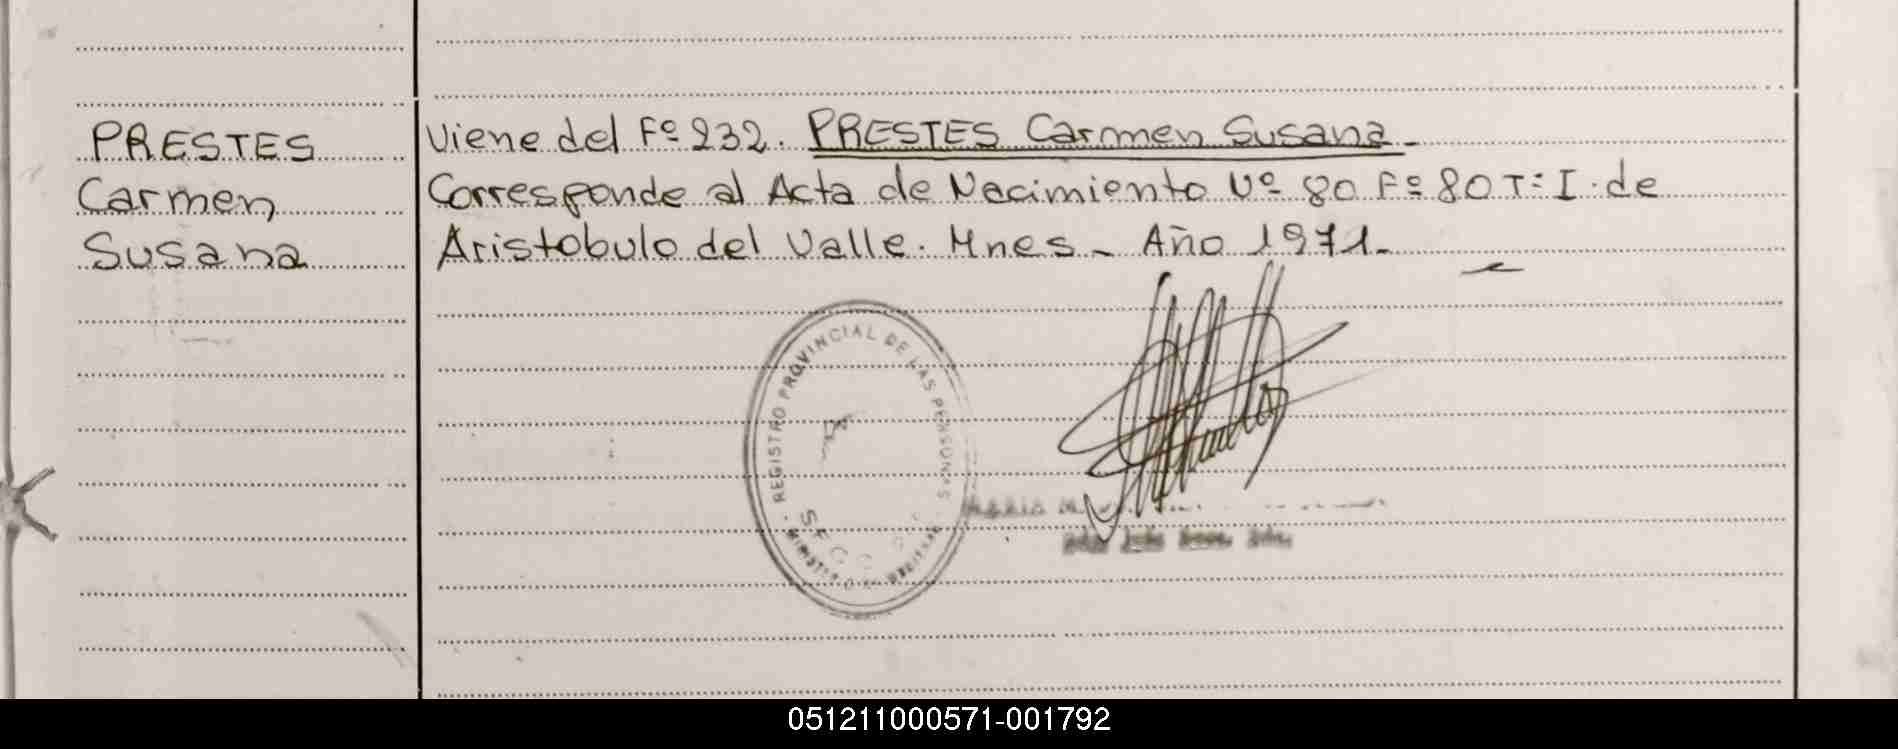 PRESTES
Carmen
Susana
Viene del Fº 232. PRESTES Carmen Susana.-
Corresponde al Acta de Nacimiento Nº 80 Fº 80 Tº I. de
Aristobulo del Valle. Mnes - Año 1971.-
REGISTRO PROVINCIAL DE LAS PERSONAS
051211000571-001792